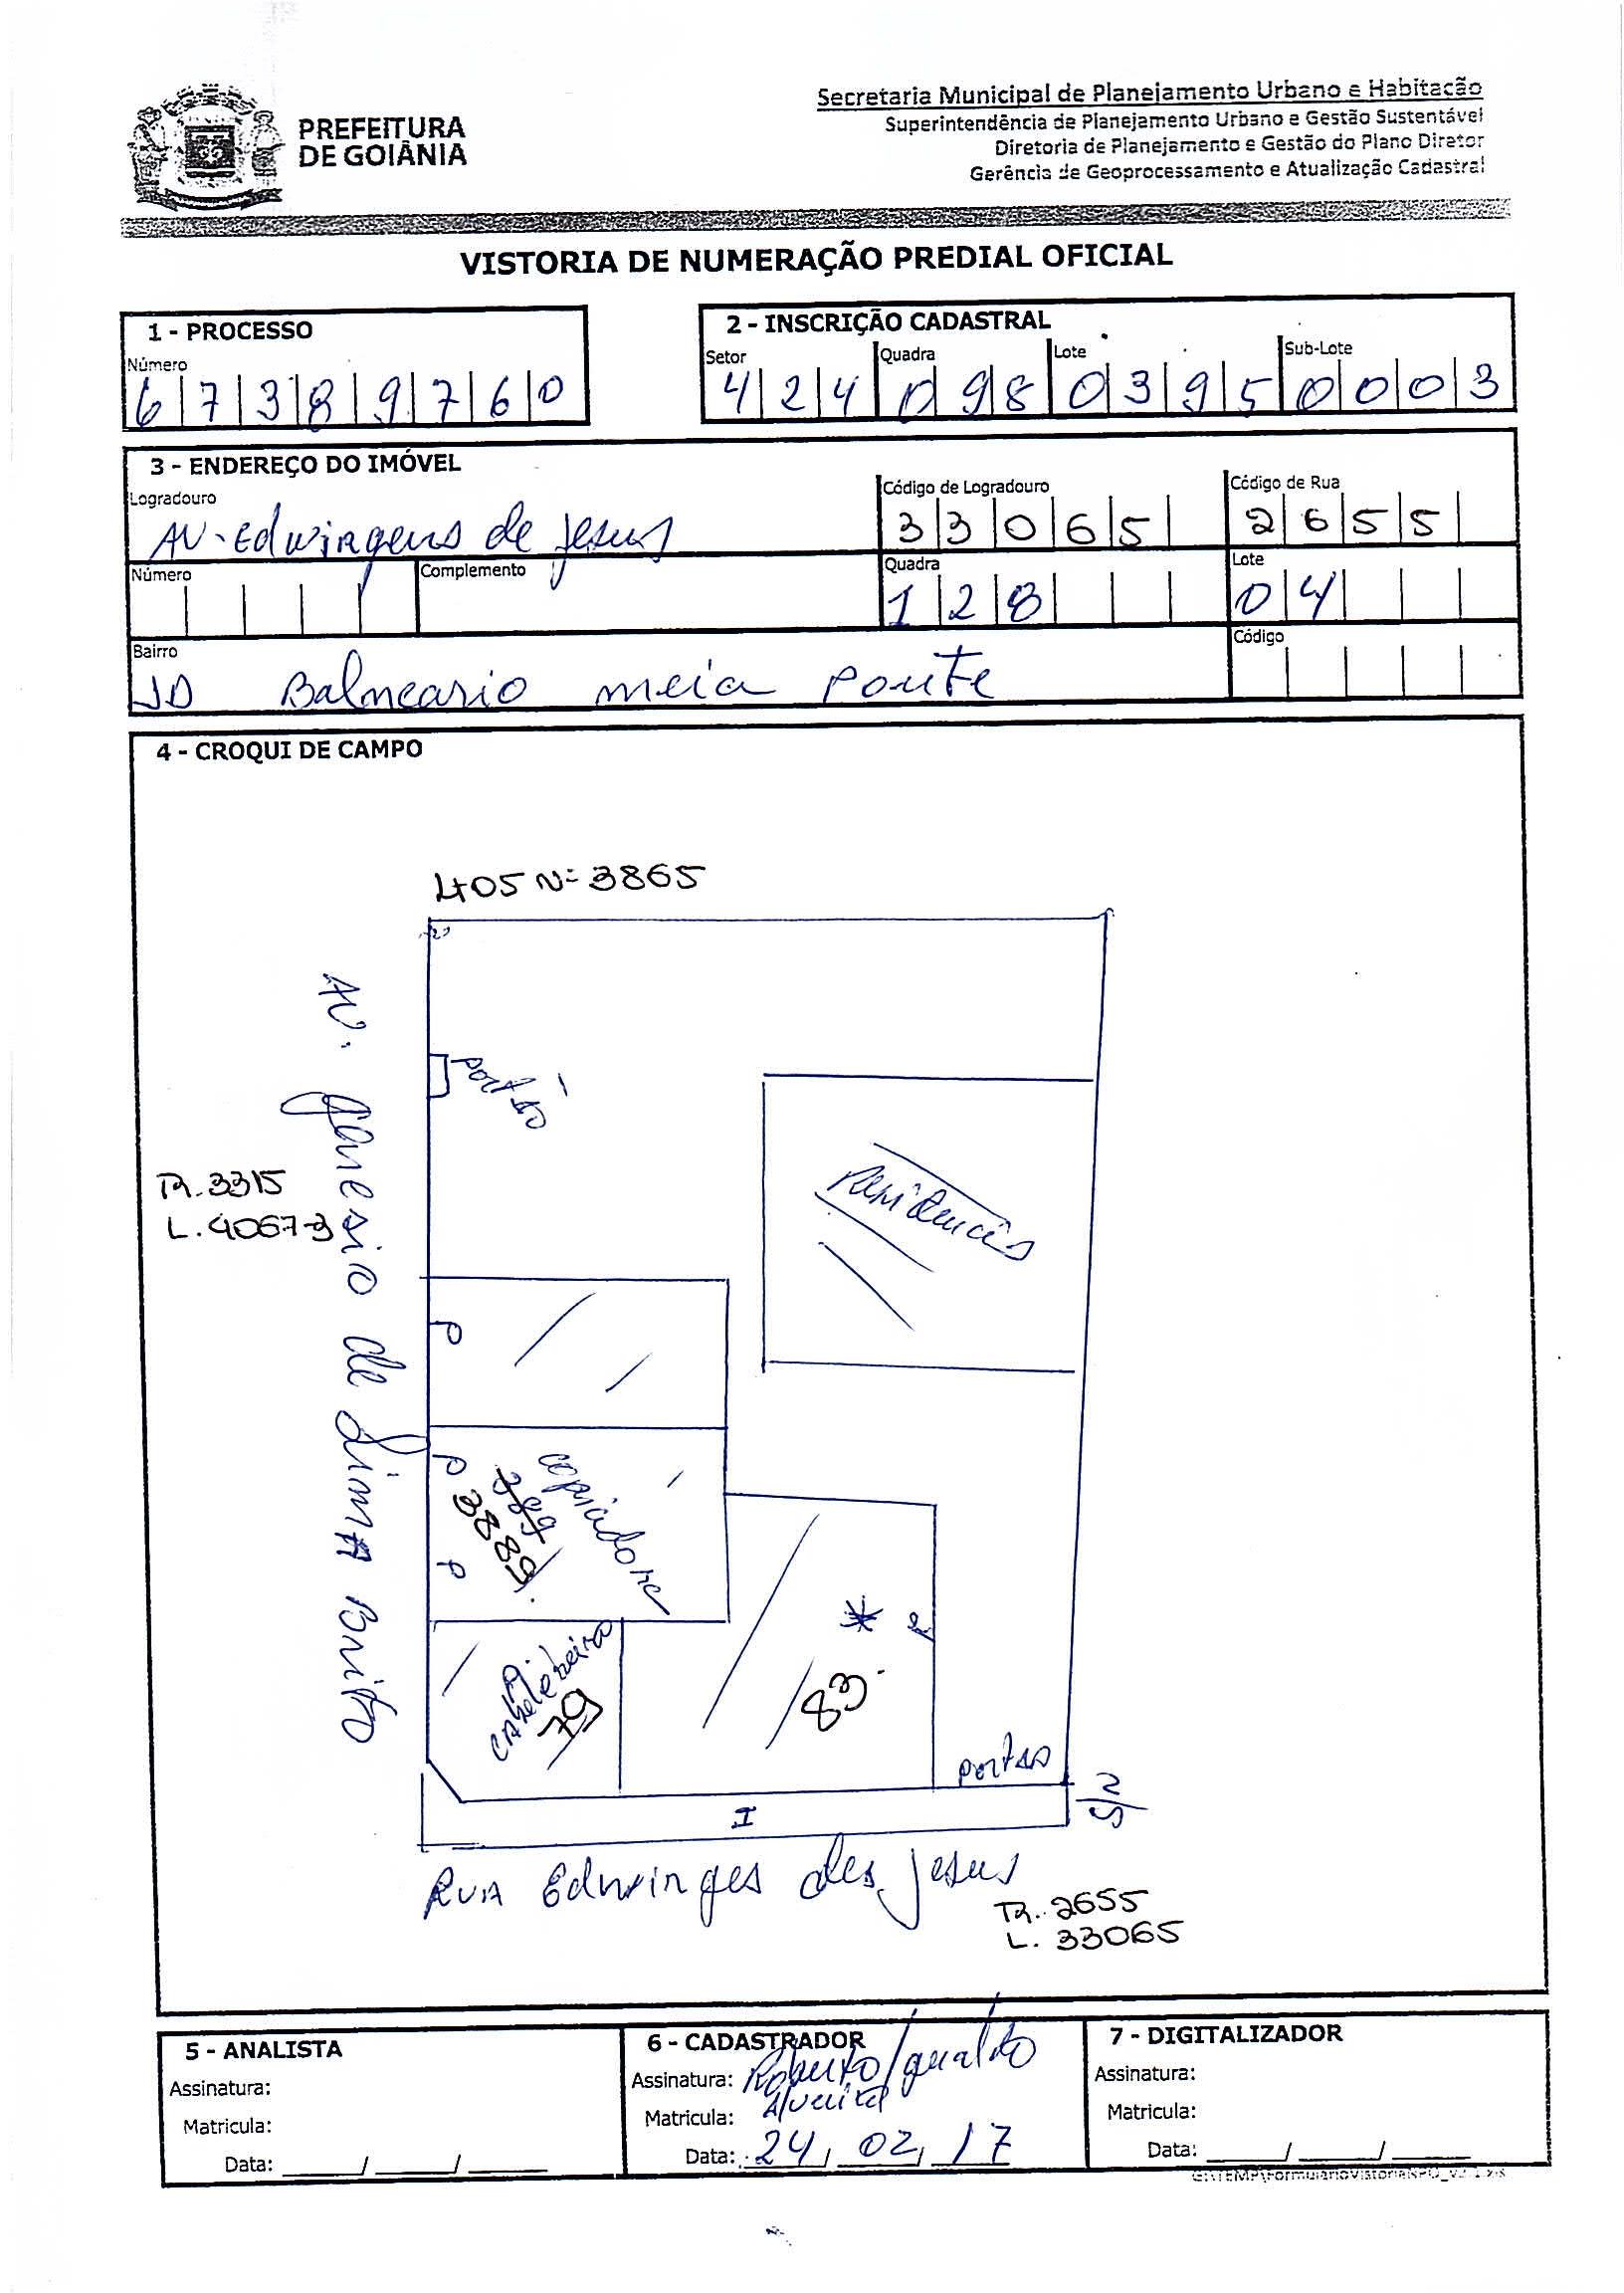 PREFEITURA
DE GOIÂNIA
Secretaria Municipal de Planejamento Urbano e Habitação
Superintendência de Planejamento Urbano e Gestão Sustentável
Diretoria de Planejamento e Gestão do Plano Diretor
Gerência de Geoprocessamento e Atualização Cadastral
VISTORIA DE NUMERAÇÃO PREDIAL OFICIAL
1 - PROCESSO
Número
6 7 3 8 9 7 6 0
2 - INSCRIÇÃO CADASTRAL
Setor Quadra Lote Sub-Lote
4 2 4 0 9 8 0 3 9 5 0 0 0 3
3 - ENDEREÇO DO IMÓVEL
Logradouro Código de Logradouro Código de Rua
AV. Edwirgens de Jesus 3 3 0 6 5 2 6 5 5
Número Complemento Quadra Lote
1 2 8 0 4
Bairro Código
JD Balneario meia ponte
4 - CROQUI DE CAMPO
405 N= 3865
portão
AV. Genesio de Lima Brito
R. 3315
L. 4067-3
Residencia
P
P
copiadora
389
3889
P
cabeleireira
79
83
portão
I
2/5
Rua Edwinges des Jesus
R. 2655
L. 33065
5 - ANALISTA
Assinatura:
Matricula:
Data: ____/____/____
6 - CADASTRADOR
Assinatura: Roberto/Geraldo
Matricula:
Data: 24/02/17
7 - DIGITALIZADOR
Assinatura:
Matricula:
Data: ____/____/____
G:\TEMP\FormularioVistoriaNPO_v2_1.xls